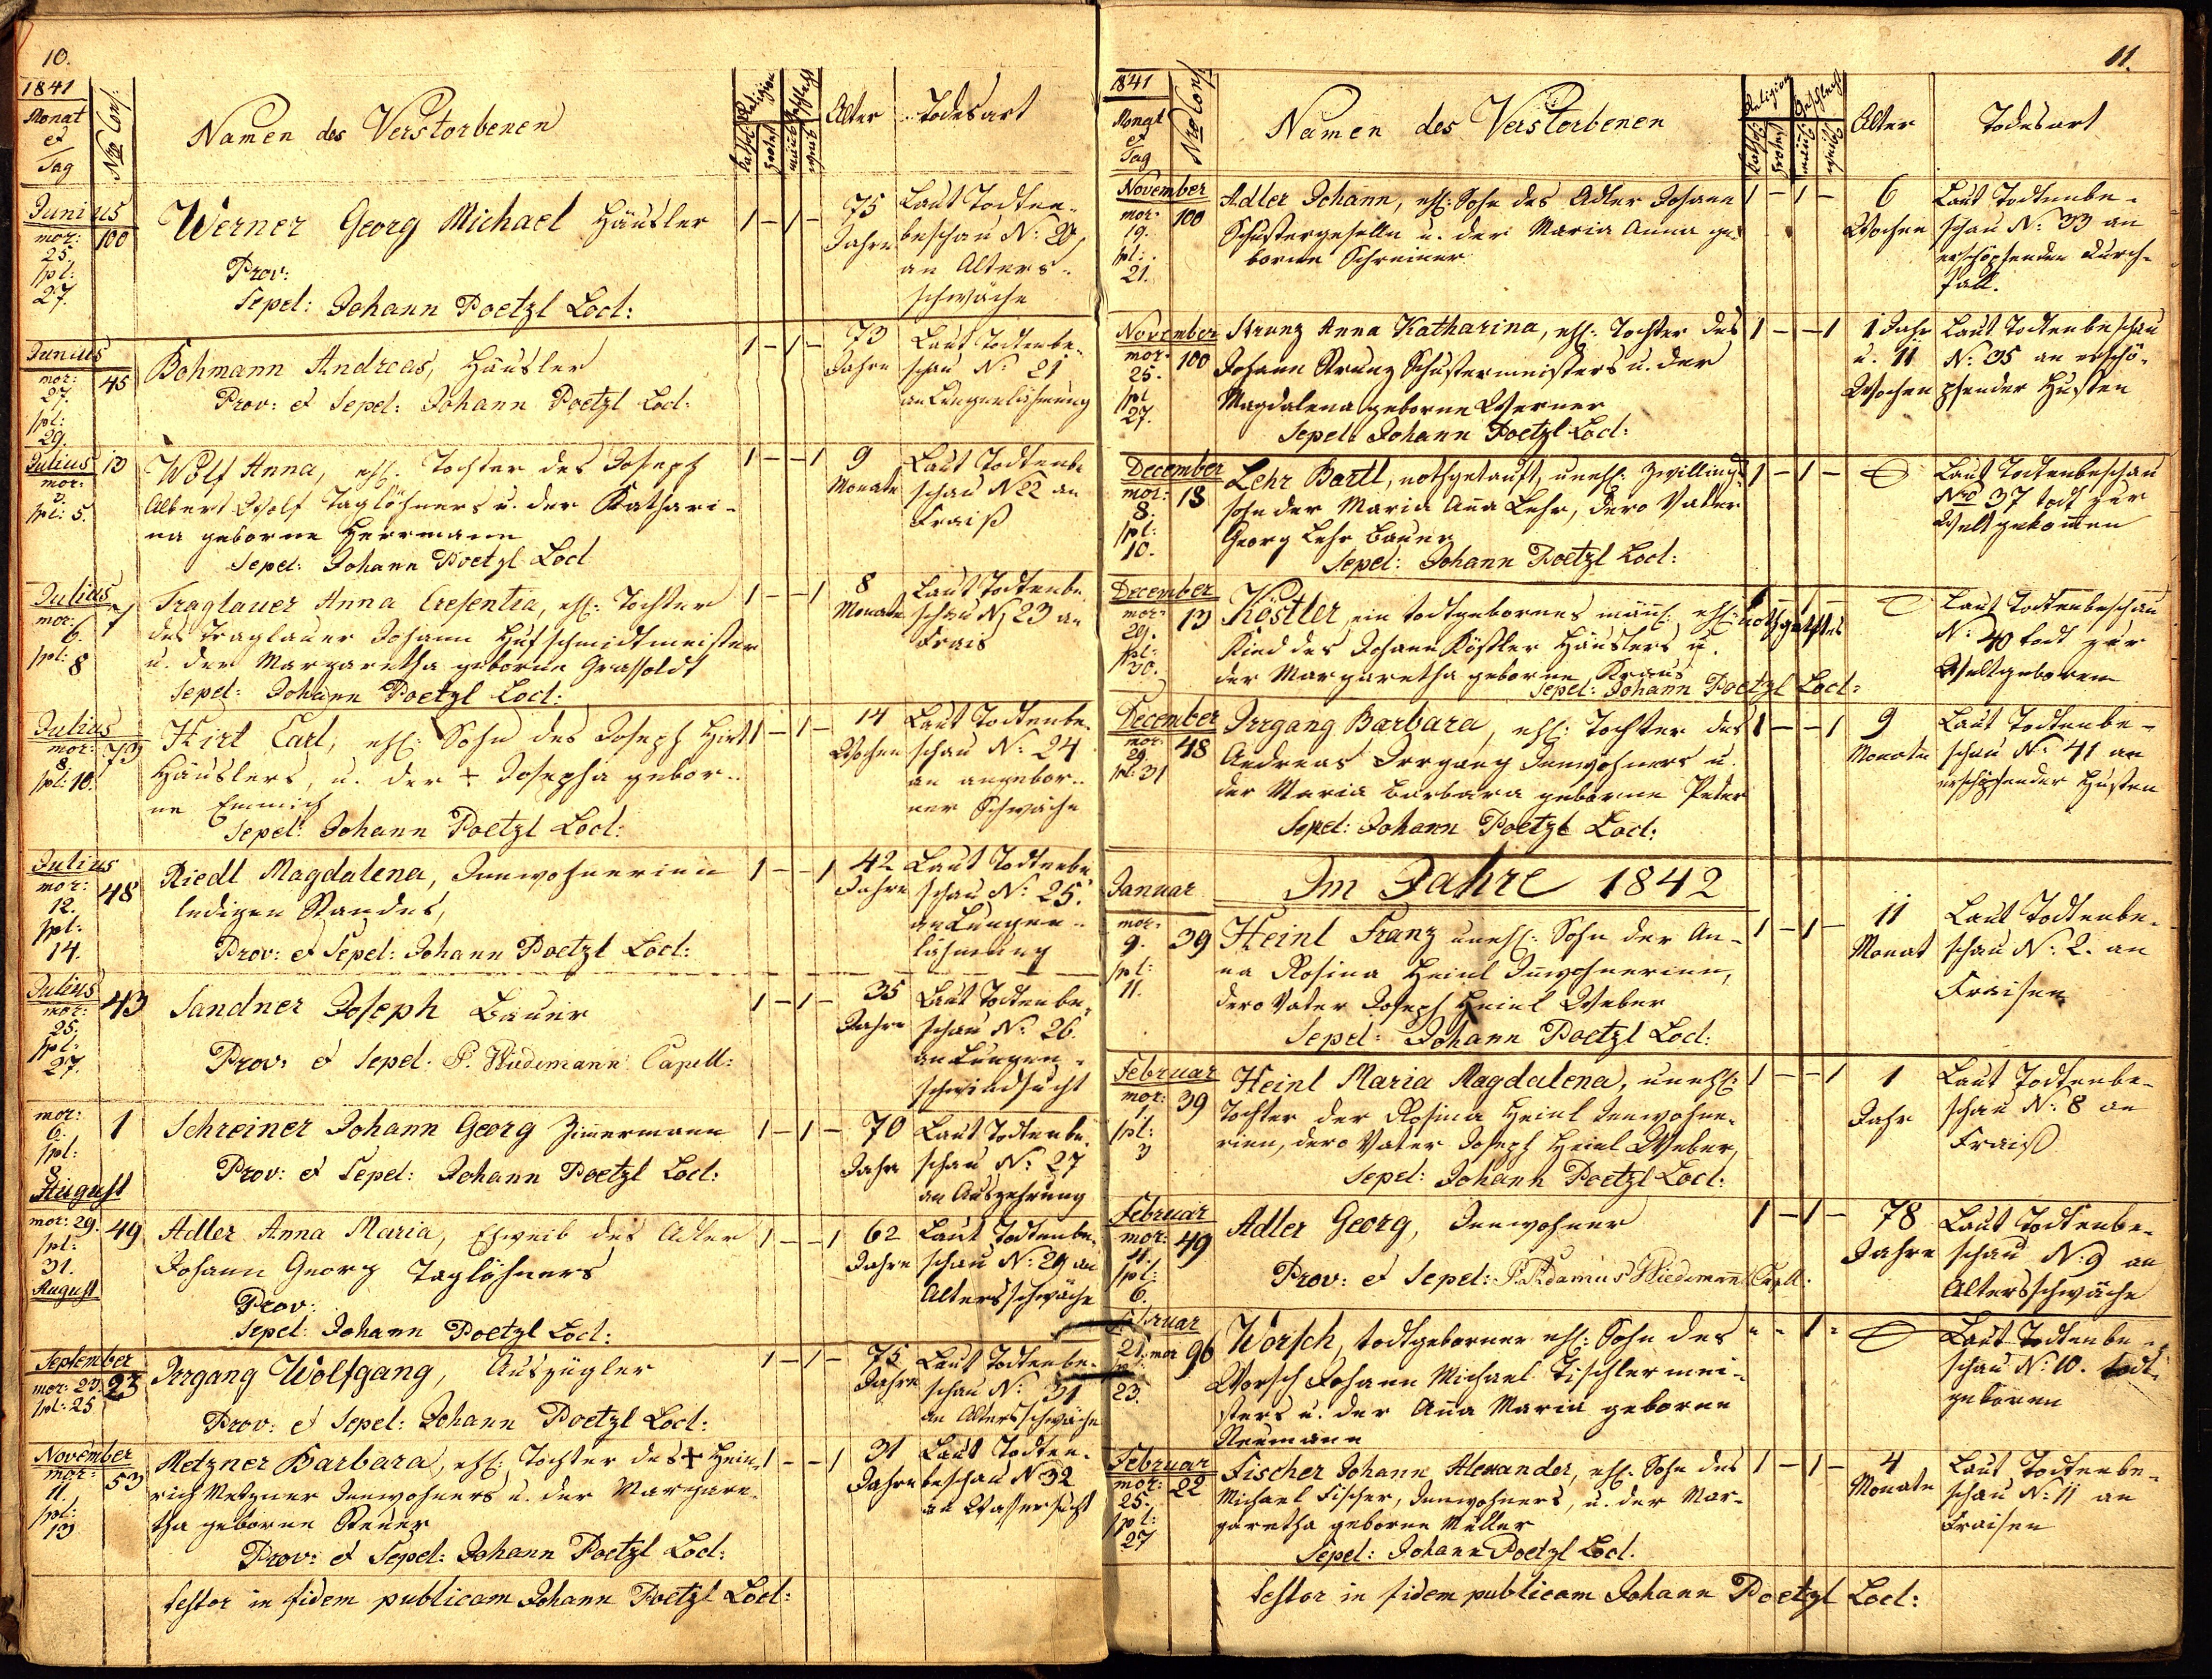 10.
1841
Monat
et
Tag
Nro Cons:
Namen des Verstorbenen
Religion
Kathol:
Protest
Geschlecht
männl
weibl
Alter
Todesart
Junius
mor:
25.
spl:
27.
100
Werner Georg Michael Häusler
Prov:
Sepel: Johann Poetzl Locl:
1 – 1 –
75
Jahre
Laut Todten-
beschau N: 20,
an Alters-
schwäche
Junius
mor:
27.
spl:
29.
45
Bohmann Andreas, Häusler
Prov: et Sepel: Johann Poetzl Locl:
1 – 1 –
73
Jahre
Laut Todtenbe-
schau N: 21
an Lungenlähmung
Julius
mor:
3.
spl: 5.
13
Wolf Anna, ehl. Tochter des Joseph
Albert Wolf Taglöhners u. der Kathari-
na geborne Herrmann
Sepel: Johann Poetzl Locl
1 – – 1
9
Monate
Laut Todtenbe
schau N 22 an
Fraiß
Julius
mor:
6.
spl:
8
7
Traglauer Anna Cresentia, ehl: Tochter
des Traglauer Johann Hufschmidtmeister
u. der Margaretha geborne Grassoldt
Sepel: Johann Poetzl Locl:
1 – – 1
8
Monate
Laut Todtenbe
schau N 23 an
Frais
Julius
mor:
8.
spl: 10.
73
Hirt Carl, ehl: Sohn des Joseph Hirt
Häuslers, u. der + Josepha gebor-
ne Emmich
Sepel: Johann Poetzl Locl:
1 – 1 –
14
Wochen
Laut Todtenbe-
schau N: 24
an angebor-
ner Schwäche
Julius
mor:
12.
spl:
14.
48
Riedl Magdalena, Innwohnerinn
ledigen Standes,
Prov: et Sepel: Johann Poetzl Locl:
1 – – 1
42
Jahre
Laut Todtenbe
schau N: 25.
an Lungen-
lähmung
Julius
mor:
25.
spl:
27.
43
Sandner Joseph Bauer
Prov: et Sepel: P. Wiedemann Capell:
1 – 1 –
35
Jahre
Laut Todtenbe-
schau N: 26.
an Lungen-
schwindsucht
mor:
6.
spl:
8
August
1
Schreiner Johann Georg Zimmermann
Prov: et Sepel: Johann Poetzl Locl:
1 – 1 –
70
Jahre
Laut Todtenbe-
schau N: 27
an Auszehrung
mor: 29.
spl:
31.
August
49
Adler Anna Maria, Ehweib des Adler
Johann Georg Taglöhners
Prov:
Sepel: Johann Poetzl Locl:
1 – – 1
62
Jahre
Laut Todtenbe-
schau N: 29 an
Altersschwäche
September
mor: 23.
spl: 25
23
Irrgang Wolfgang, Auszügler
Prov: et Sepel: Johann Poetzl Locl:
1 – 1 –
75
Jahre
Laut Todtenbe-
schau N: 31
an Altersschwäche
November
mor:
11.
spl:
13
53
Metzner Barbara, ehl: Tochter des + Hein-
rich Metzner Innwohners u. der Margare-
tha geborne
Prov: et Sepel: Johann Poetzl Locl:
1 – – 1
31
Jahre
Laut Todten-
beschau N 32
an Wassersucht
testor in fidem publicam Johann Poetzl Locl:
11.
1841
Monat
et
Tag
Nro Cons:
Namen des Verstorbenen
Religion
Kathol:
Protest
Geschlecht
männl
weibl
Alter
Todesart
November
mor:
19.
spl:
21.
100
Adler Johann, ehl: Sohn des Adler Johann
Schustergeselln u. der Maria Anna ge-
borne Schreiner
1 – 1 –
6
Wochen
Laut Todtenbe-
schau N: 33 an
erschöpfenden Durch-
fall.
November
mor:
25.
spl
27.
100
Strunz Anna Katharina, ehl: Tochter des
Johann Strunz Schustermeisters u. der
Magdalena geborne Werner
Sepel: Johann Poetzl Locl:
1 – – 1
1 Jahr
u. 11
Wochen
Laut Todtenbeschau
N: 35 an erschö-
pfender Husten
December
mor:
8.
spl:
10.
18
Lehr Bartl, nothgetauft, unehl: Zwillings-
sohn der Maria Anna Lehr, dero Vater
Georg Lehr Bauer
Sepel: Johann Poetzl Locl:
1 – 1 –
Laut Todtenbeschau
Nro 37 todt zur
Welt gekommen
December
mor:
29.
spl:
30.
13
Köstler, ein todtgebornes männl: ehl: nothgetauftes
Kind des Johann Köstler Häuslers u.
der Margaretha geborne Kraus
Sepel: Johann Poetzl Locl:
Laut Todtenbeschau
N: 40 todt zur
Welt geboren
December
mor:
29.
spl: 31
48
Irrgang Barbara, ehl: Tochter des
Andreas Irrgang Innwohners u.
der Maria Barbara geborne Peter
Sepel: Johann Poetzl Locl:
1 – – 1
9
Monate
Laut Todtenbe-
schau N: 41 an
erschöpfender Husten
Im Jahre 1842
Januar
mor:
9.
spl:
11.
39
Heinl Franz unehl: Sohn der An-
na Rosina Heinl Innwohnerinn,
dero Vater Joseph Heinl Weber
Sepel: Johann Poetzl Locl:
1 – 1 –
11
Monat
Laut Todtenbe-
schau N: 2. an
Fraisen
Februar
mor:
1.
spl:
3
39
Heinl Maria Magdalena, unehl:
Tochter der Rosina Heinl Innwohne-
rinn, dero Vater Joseph Heinl Weber,
Sepel: Johann Poetzl Locl:
1 – – 1
1
Jahr
Laut Todtenbe-
schau N: 8 an
Fraiß
Februar
mor:
4.
spl:
6.
49
Adler Georg, Innwohner
Prov: et Sepel: P. Adamus Wiedemann Capll:
1 – 1 –
78
Jahre
Laut Todtenbe-
schau N: 9 an
Altersschwäche
Februar
21. mor
23.
96
Worsch, todtgeborner ehl: Sohn des
Worsch Johann Michael Tischlermei-
sters u. der Anna Maria geborne
Neumann
Laut Todtenbe-
schau N: 10. todt
geboren
Februar
mor:
25.
spl:
27
22
Fischer Johann Alexander, ehl: Sohn des
Michael Fischer, Innwohners, u. der Mar-
garetha geborne Müller
Sepel: Johann Poetzl Locl.
1 – 1 –
4
Monate
Laut Todtenbe-
schau N: 11 an
Fraisen
testor in fidem publicam Johann Poetzl Locl: